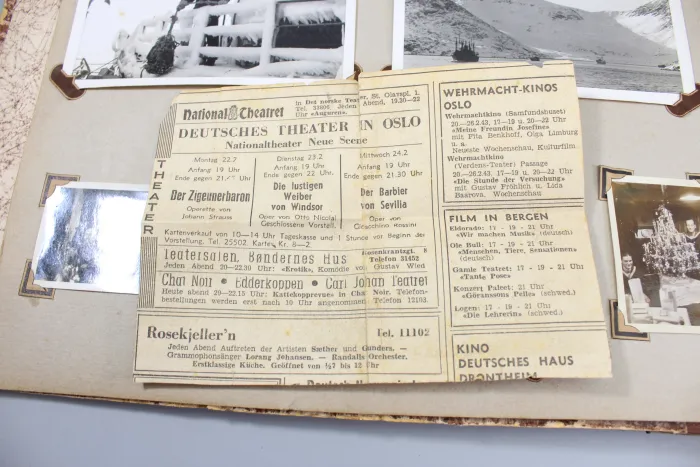 THEATER
National Theatret
in Det norske Teatret, St. Olavspl. 1
Tel. 33606 Jeden Abend, 19.30—22
Uhr «Augoren».
DEUTSCHES THEATER IN OSLO
Nationaltheater Neue Scene
Montag 22.2
Anfang 19 Uhr
Ende gegen
Der Zigeunerbaron
Operette von
Johann Strauss
Dienstag 23.2
Anfang 19 Uhr
Ende gegen 22 Uhr.
Die lustigen
Weiber
von Windsor
Oper von Otto Nicolai
Geschlossene Vorstell.
Mittwoch 24.2
Anfang 19 Uhr
Ende gegen 21.30 Uhr
Der Barbier
von Sevilla
Oper von
Giacchino Rossini
Kartenverkauf von 10—14 Uhr Tageskasse und 1 Stunde vor Beginn der
Vorstellung. Tel. 25502. Karten Kr. 8—2
Teatersalen, Bøndernes Hus
Rosenkrantzgt. 8
Telefon 31452
Jeden Abend 20—22.30 Uhr: «Erotik», Komödie von Gustav Wied
Chat Noir • Edderkoppen • Carl Johan Teatret
Heute abend 20—22.15 Uhr: Kattekopprevue» in Chat Noir. Telefon-
bestellungen werden erst nach 10 Uhr angenommen. Telefon 12103.
Rosekjeller'n
Tel. 11102
Jeden Abend Auftreten der Artisten Sæther und Gunders, —
Grammophonsänger Lorang Johansen. — Randalls Orchester.
Erstklassige Küche. Geöffnet von ½7 bis 12 Uhr
WEHRMACHT-KINOS
OSLO
Wehrmachtkino (Samfundshuset)
20.—26.2.43, 17—19 u. 20—22 Uhr
«Meine Freundin Josefine»
mit Fita Benkhoff, Olga Limburg
u. a.
Neueste Wochenschau, Kulturfilm
Wehrmachtkino
(Verdens-Teater) Passage
20.—26.2.43, 17—19 u. 20—22 Uhr
«Die Stunde der Versuchung»
mit Gustav Fröhlich u. Lida
Baarova. Wochenschau
FILM IN BERGEN
Eldorado: 17 - 19 - 21 Uhr
«Wir machen Musik» (deutsch)
Ole Bull: 17 - 19 - 21 Uhr
«Menschen, Tiere, Sensationen»
(deutsch)
Gamle Teatret: 17 - 19 - 21 Uhr
«Tante Pose»
Konzert Palaet: 17 - 19 - 21 Uhr
«Göranssons Pelle» (schwed.)
Logen: 17 - 19 - 21 Uhr
«Die Lehrerin» (schwed.)
KINO
DEUTSCHES HAUS
DRONTHEIM